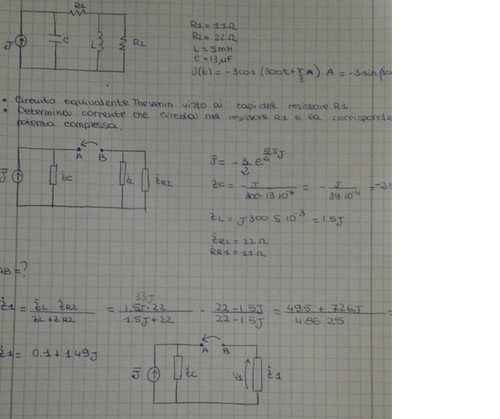 R1
J
C
L
R2
R1 = 11Ω
R2 = 22Ω
L = 5mH
C = 13μF
J(t) = -3cos(300t+π/3 A) A = -3sin(
• Circuito equivalente Thevenin visto ai capi del resistore R1
• Determina corrente che circola nel resistore R1 e la corrisponde
potenza complessa.
A B
J̅
żC
żL
żR2
J̅ = -3/2 e^(5/6 πJ)
żC = - J/(300·13·10⁻⁶) = - J/(39·10⁻⁴) = -2
żL = J300·5·10⁻³ = 1.5J
żR2 = 22Ω
RR1 = 11Ω
AB = ?
ż1 = żL żR2/(żL+żR2) = 33J 1.5J·22/(1.5J+22) · (22-1.5J)/(22-1.5J) = (49.5 + 726J)/486.25 =
ż1 = 0.1 + 1.49J
A B
J̅
żC
V1
ż1